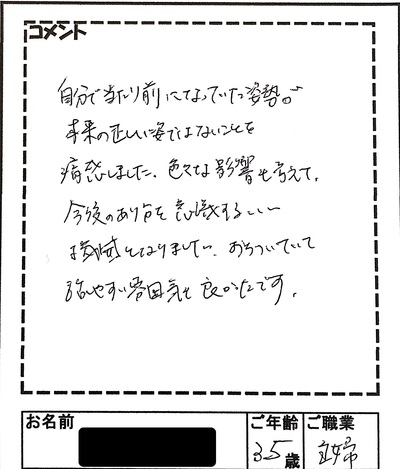 コメント
自分で当たり前になっていた姿勢が
本来の正しい姿ではないことを
痛感しました。色々な影響も考えて、
今後のあり方を意識するいい
機会となりました。おちついていて
話しやすい雰囲気も良かったです。
お名前
ご年齢
ご職業
35歳
主婦